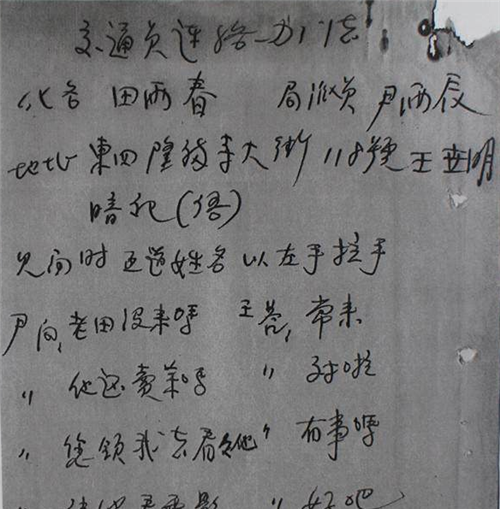 交通员连络办法
化名 田雨春 局派员 尹西辰
地址 東四隆福寺大街118號王世明
暗记(语)
见面时 互道姓名 以左手拉手
尹问, 老田没来吗 王答, 常来
〃 他还卖菜吗 〃 对啦
〃 您领我去看看他 〃 有事吗
〃 好吧